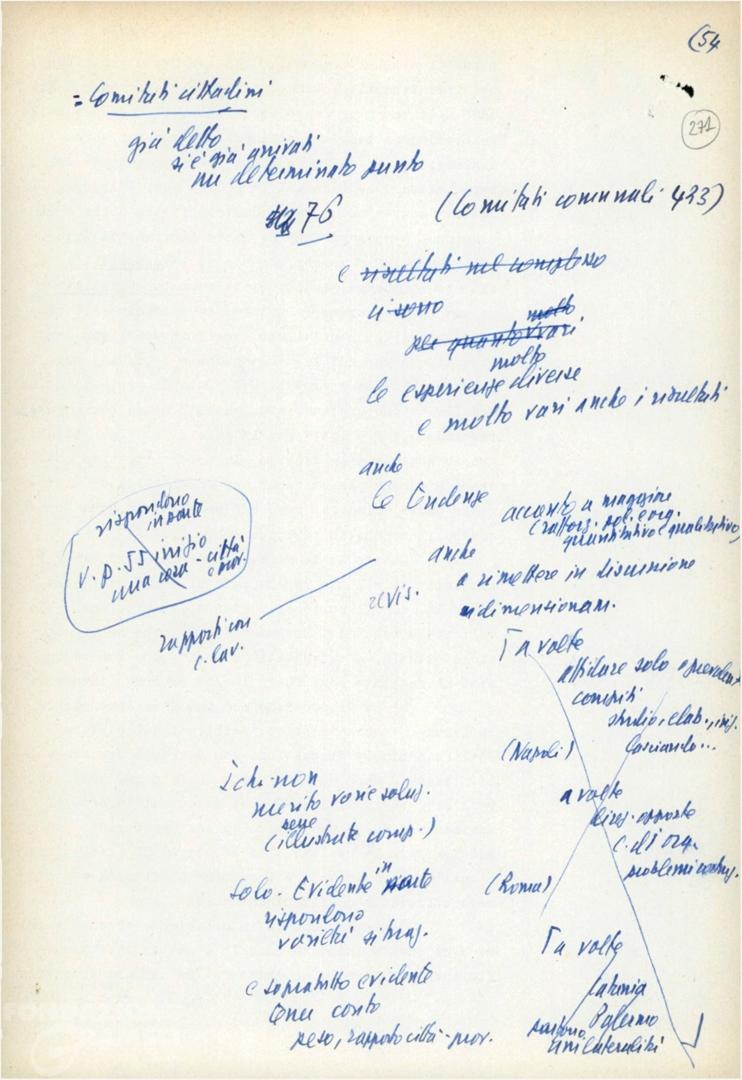 (54
271
= Comitati cittadini
già detto
si è già arrivati
ad un determinato punto
76
(Comitati comunali 423)
e risultati nel complesso
ci sono
molto
per quanto vari
molto
le esperienze diverse
e molto vari anche i risultati
anche
le tendenze
accanto a maggiore
(rafforz. pol. e org.
quantitativo e qualitativo)
anche
a rimettere in discussione
revis.
ridimensionam.
rispondono
in parte
v. p. 55 inizio
una cosa - città
e prov.
rapporti con
c. lav.
[ a volte
affidare solo o prevalent.
compiti
studio, elab., iniz.
(Napoli)
lasciando...
I chi non
merito varie soluz.
bene
(illustrate comp.)
a volte
direz. opposte
c. d'org.
problemi
(Roma)
solo. Evidente in parte
rispondono
varietà situaz.
[ a volte
e soprattutto evidente
tener conto
peso, rapporto città - prov.
Catania
Palermo
unilateralità